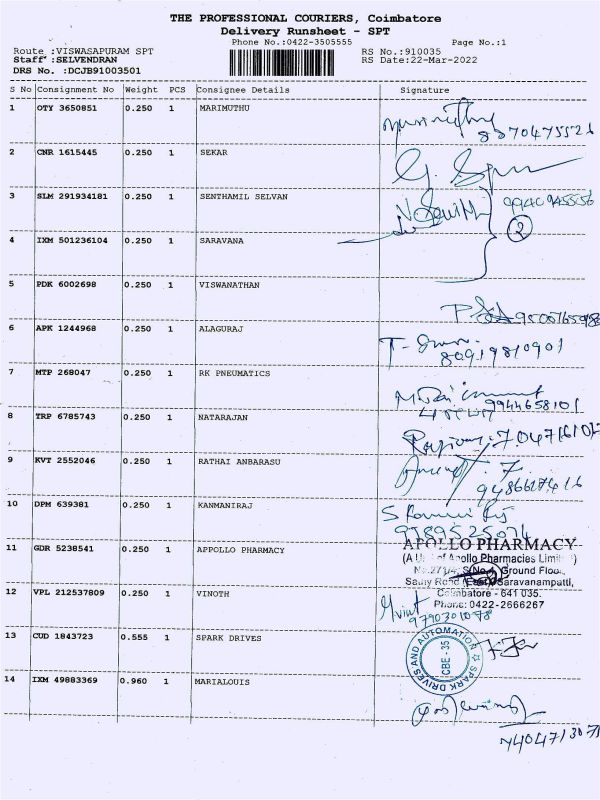 THE PROFESSIONAL COURIERS, Coimbatore
Delivery Runsheet - SPT
Phone No.:0422-3505555
Page No.:1
Route :VISWASAPURAM SPT
RS No.:910035
Staff :SELVENDRAN
RS Date:22-Mar-2022
DRS No. :DCJB91003501
S No Consignment No Weight PCS Consignee Details Signature
1 OTY 3650851 0.250 1 MARIMUTHU
2 CNR 1615445 0.250 1 SEKAR
3 SLM 291934181 0.250 1 SENTHAMIL SELVAN
2
4 IXM 501236104 0.250 1 SARAVANA
5 PDK 6002698 0.250 1 VISWANATHAN
6 APK 1244968 0.250 1 ALAGURAJ
80919810901
7 MTP 268047 0.250 1 RK PNEUMATICS
9944658101
8 TRP 6785743 0.250 1 NATARAJAN
9 KVT 2552046 0.250 1 RATHAI ANBARASU
10 DPM 639381 0.250 1 KANMANIRAJ
11 GDR 5238541 0.250 1 APPOLLO PHARMACY
APOLLO PHARMACY
Apollo Pharmacies
Ground Floor,
Saravanampatti,
Coimbatore - 641 035.
Phone: 0422-2666267
12 VPL 212537809 0.250 1 VINOTH
9790301078
13 CUD 1843723 0.555 1 SPARK DRIVES
SPARK DRIVES AND AUTOMATION
CBE - 35
14 IXM 49883369 0.960 1 MARIALOUIS